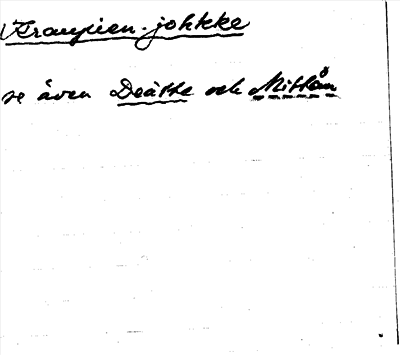 Kraupien-johkke
se även Deätke och Mittån